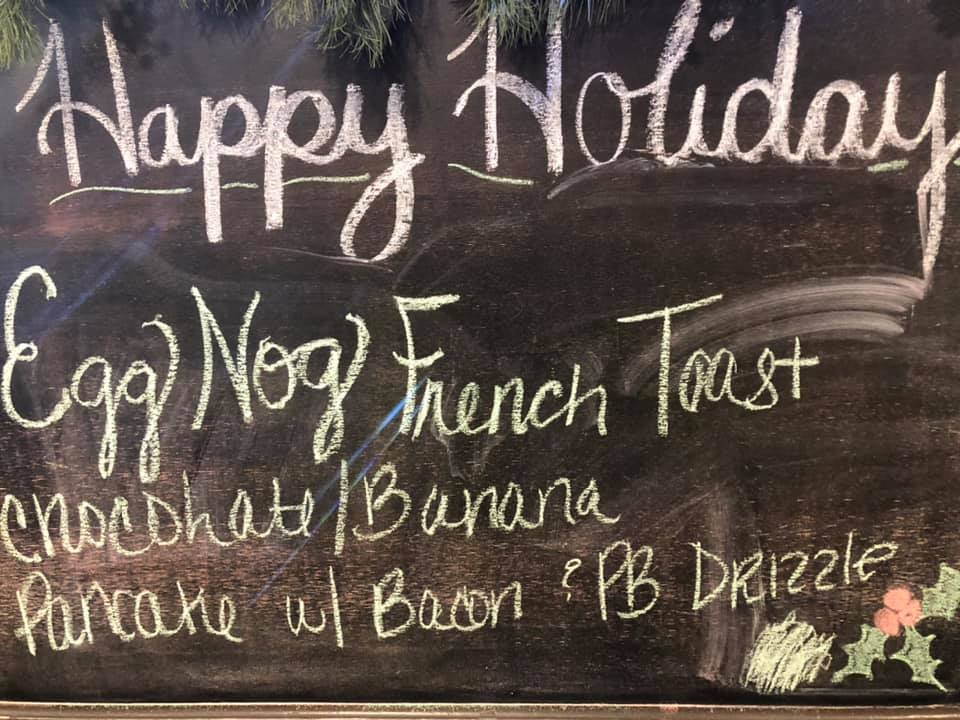 Happy Holiday
Egg Nog French Toast
Chocolate/Banana
Pancake w/ Bacon & PB Drizzle